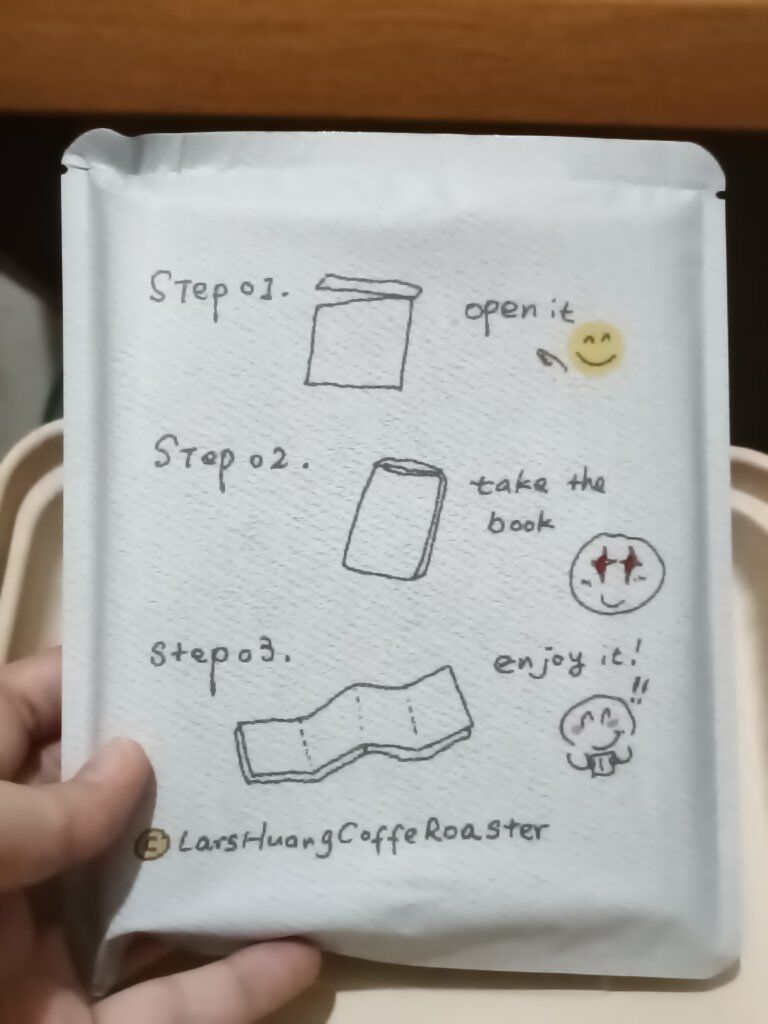 Step 01.
open it
Step 02.
take the
book
Step 03.
enjoy it!
!!
LarsHuangCoffeRoaster